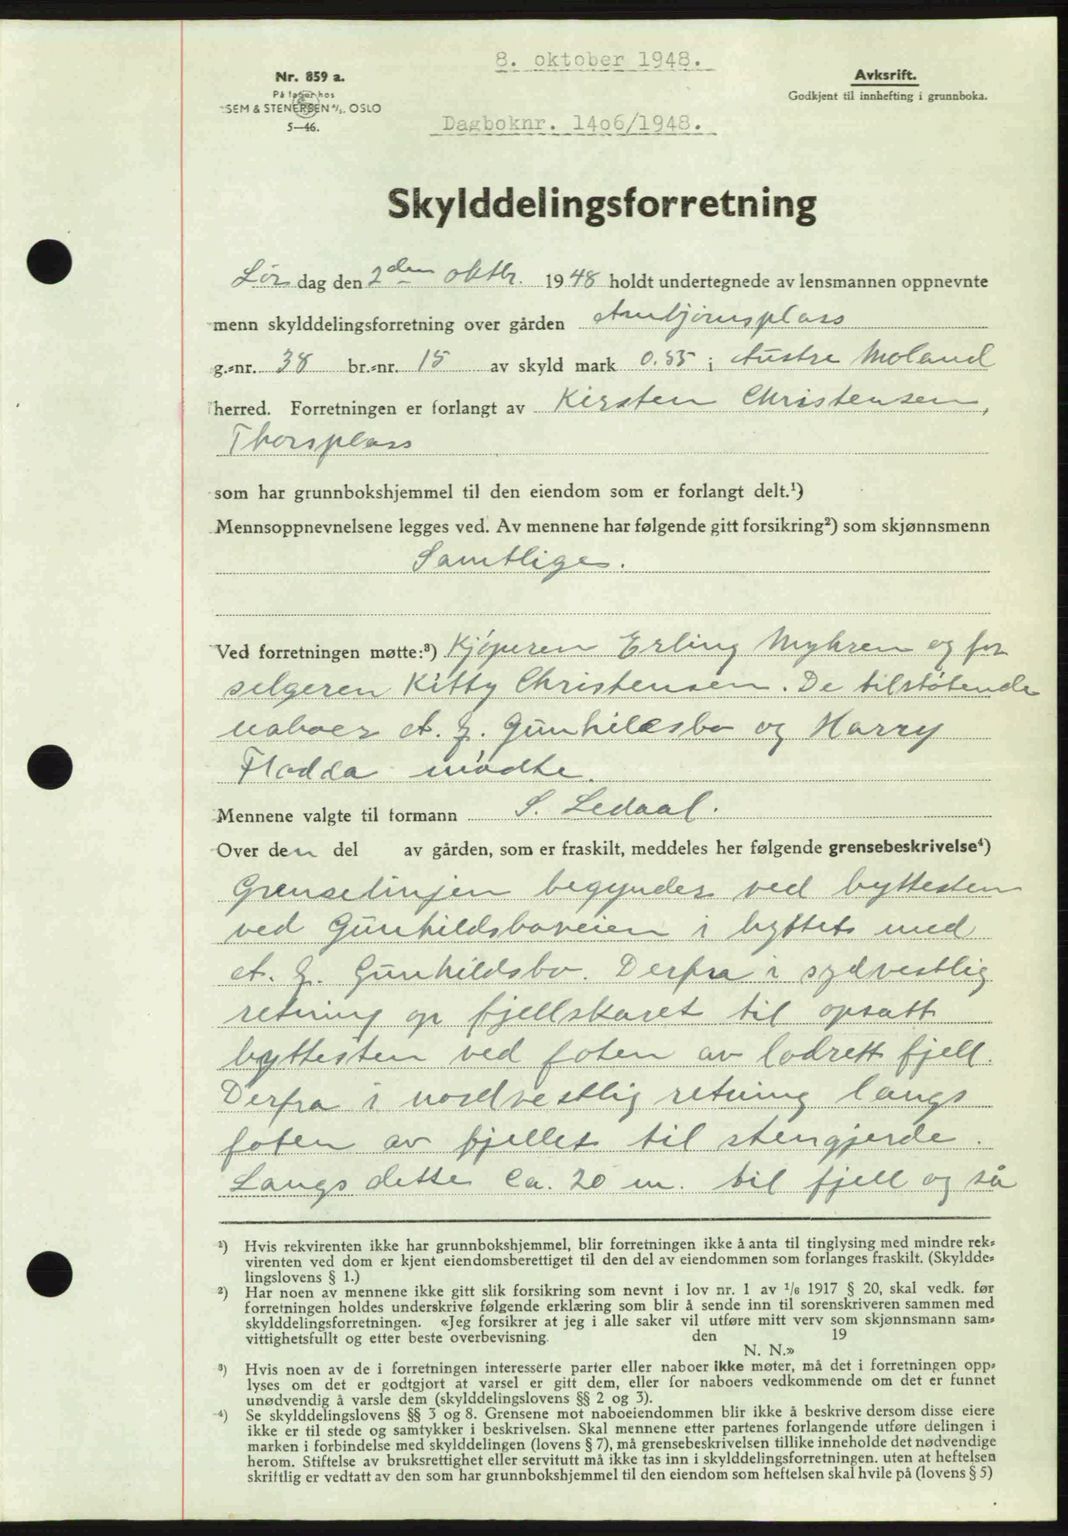 8. oktober 1948.
Nr. 859 a.
På lager hos
SEM & STENERSEN A/S. OSLO
5—46.
Avksrift.
Godkjent til innhefting i grunnboka.
Dagboknr. 14o6/1948.
Skylddelingsforretning
Lørdag den 2den oktbr. 1948 holdt undertegnede av lensmannen oppnevnte
menn skylddelingsforretning over gården Arnbjørnsplass
g.=nr. 38 br.=nr. 15 av skyld mark 0.55 i Austre Moland
herred. Forretningen er forlangt av Kirsten Christensen,
Thorsplass
som har grunnbokshjemmel til den eiendom som er forlangt delt.¹)
Mennsoppnevnelsene legges ved. Av mennene har følgende gitt forsikring²) som skjønnsmenn
Samtlige.
Ved forretningen møtte:³) Kjøperen Erling Myhren og for
selgeren Kitty Christensen. De tilstøtende
naboer A. J. Gunhildsbo og Harry
Flodda mødte.
Mennene valgte til formann S. Ledaal.
Over den del av gården, som er fraskilt, meddeles her følgende grensebeskrivelse⁴)
Grenselinjen begynder ved byttesten
ved Gunhildsboveien i byttet med
A. J. Gunhildsbo. Derfra i sydvestlig
retning op fjellskaret til opsatt
byttesten ved foten av lodrett fjell.
Derfra i nordvestlig retning langs
foten av fjellet til stengjerde.
Langs dette ca. 20 m. til fjell og så
¹) Hvis rekvirenten ikke har grunnbokshjemmel, blir forretningen ikke å anta til tinglysing med mindre rek=
virenten ved dom er kjent eiendomsberettiget til den del av eiendommen som forlanges fraskilt. (Skyldde=
lingslovens § 1.)
²) Har noen av mennene ikke gitt slik forsikring som nevnt i lov nr. 1 av 1/6 1917 § 20, skal vedk. før
forretningen holdes underskrive følgende erklæring som blir å sende inn til sorenskriveren sammen med
skylddelingsforretningen. «Jeg forsikrer at jeg i alle saker vil utføre mitt verv som skjønnsmann sam=
vittighetsfullt og etter beste overbevisning. den 19
N. N.»
³) Hvis noen av de i forretningen interesserte parter eller naboer ikke møter, må det i forretningen opp=
lyses om det er godtgjort at varsel er gitt dem, eller for naboers vedkommende om det er funnet
unødvendig å varsle dem (skylddelingslovens §§ 2 og 3).
⁴) Se skylddelingslovens §§ 3 og 8. Grensene mot naboeiendommen blir ikke å beskrive dersom disse eiere
ikke er til stede og samtykker i beskrivelsen. Skal mennene etter partenes forlangende utføre delingen i
marken i forbindelse med skylddelingen (lovens § 7), må grensebeskrivelsen tillike inneholde det nødvendige
herom. Stiftelse av bruksrettighet eller servitutt må ikke tas inn i skylddelingsforretningen. uten at heftelsen
skriftlig er vedtatt av den som har grunnbokshjemmel til den eiendom som heftelsen skal hvile på (lovens § 5)